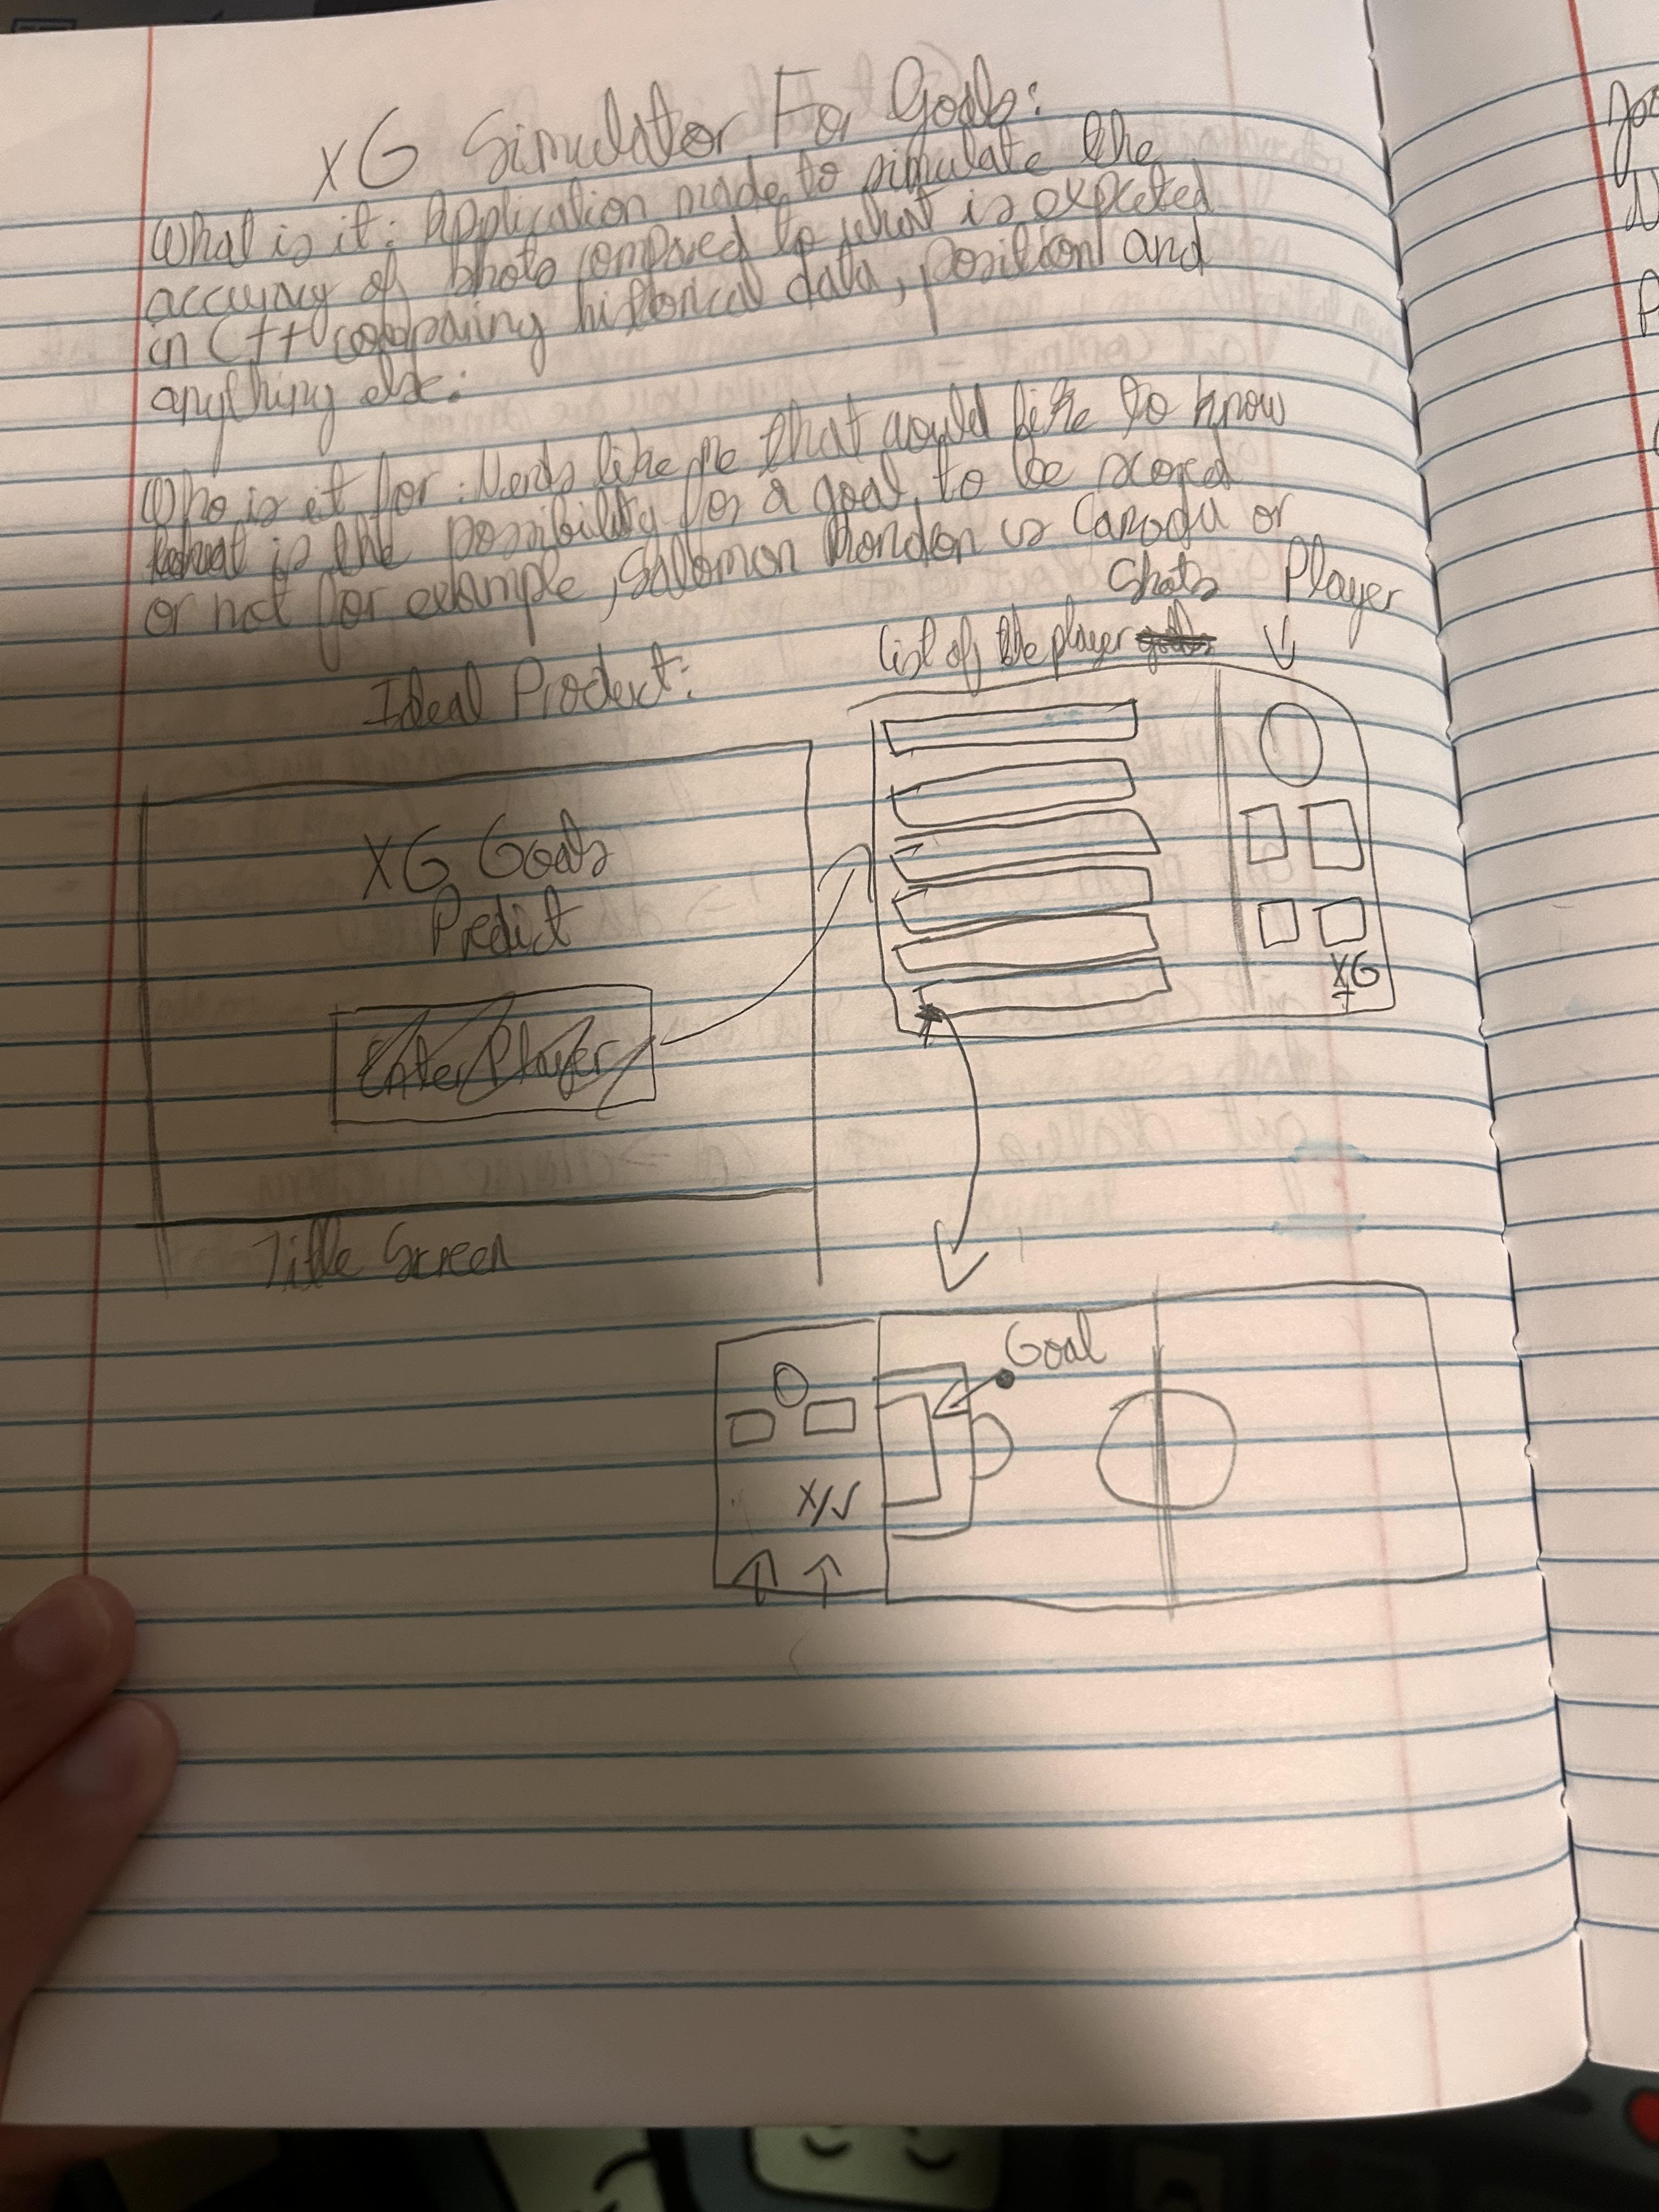 xG Simulator For Goals:
What is it: Application made to simulate the
accuracy of shots compared to what is expected
in C++ comparing historical data, position and
anything else:
Who is it for: Nerds like me that would like to know
what is the possibility for a goal to be scored
or not for example, Salomon Rondon vs or
Shots Player
List of the player
Ideal Product:
XG Goals
Predict
Enter Player
XG
Title Screen
Goal
X/√